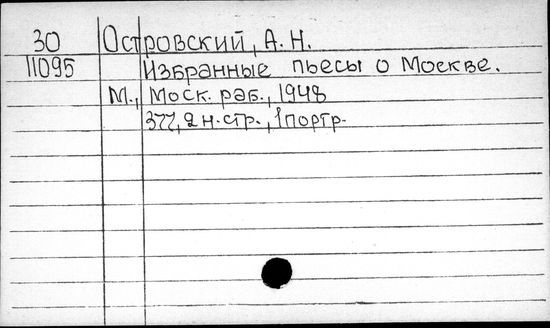 30 Островский, А. Н.
11095 Избранные пьесы о Москве.
М., Моск. раб., 1948
377, 2 н. стр., 1 портр.